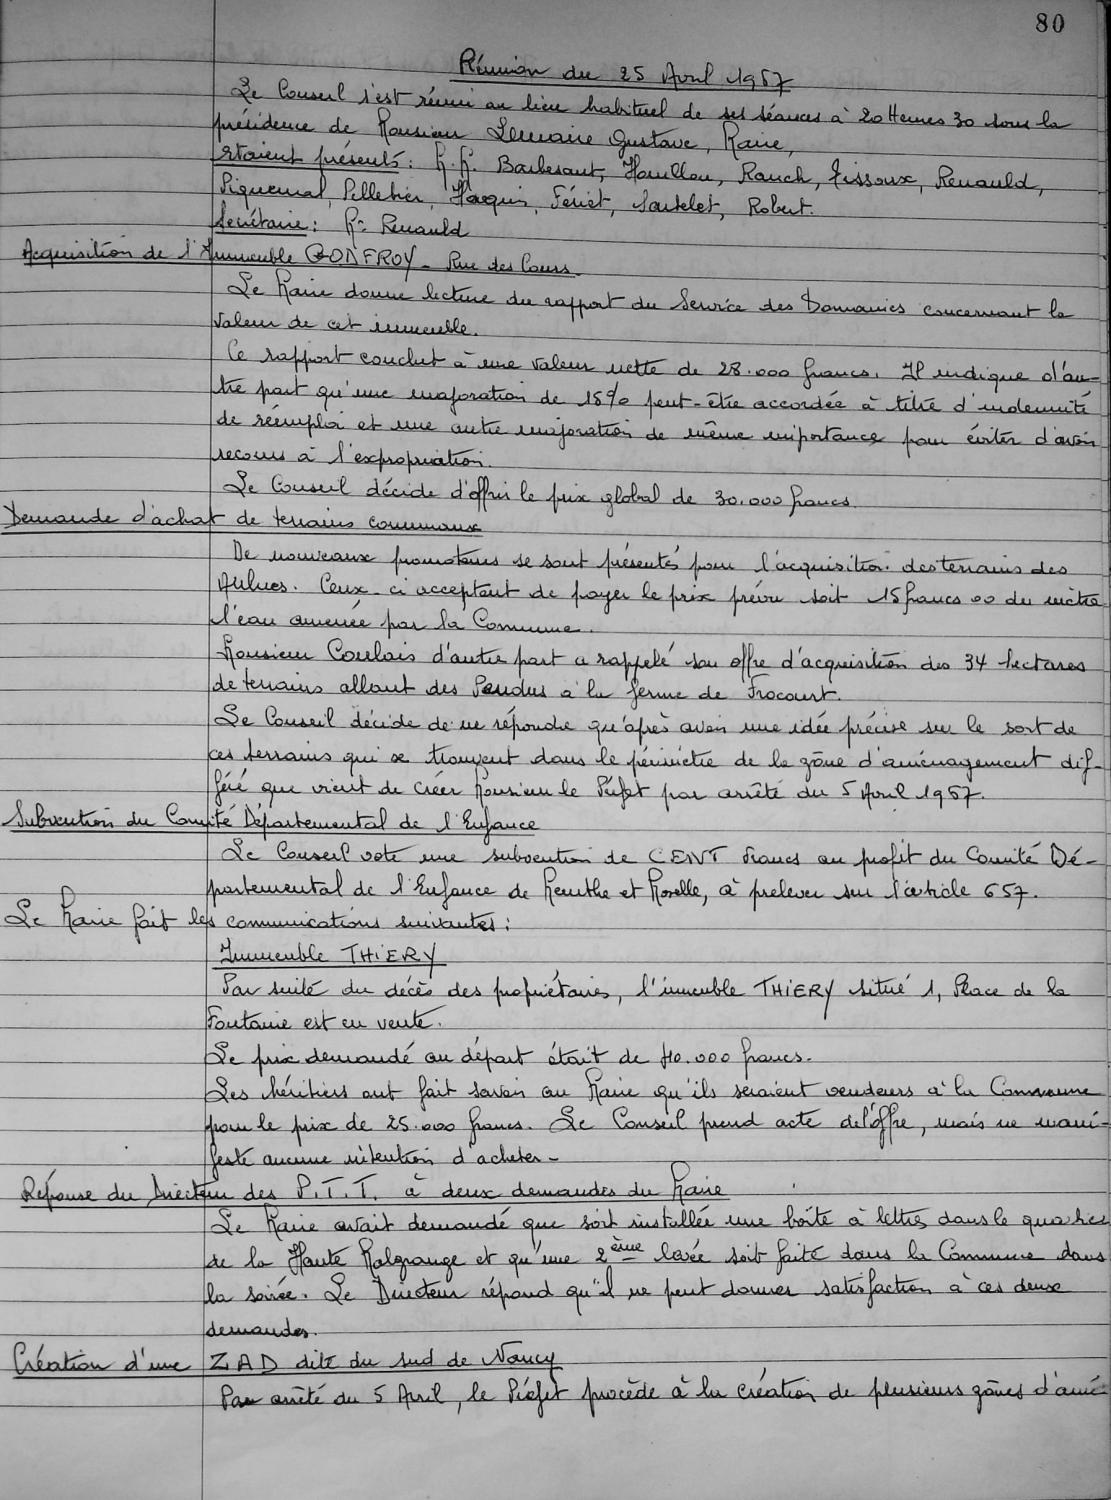 80
Réunion du 25 Avril 1967
Le Conseil s'est réuni au lieu habituel de ses séances à 20 Heures 30 sous la
présidence de Monsieur Lemaire Gustave, Maire,
Etaient présents : M.M. Barbesant, Houillon, Rauch, Tissoux, Renauld,
Piquemal, Pelletier, Haquin, Fériet, Sautelet, Robert.
Secrétaire : Mr Renauld
Acquisition de l'Immeuble GONFROY - Rue des Cours -
Le Maire donne lecture du rapport du Service des Domaines concernant la
valeur de cet immeuble.
Ce rapport conclut à une valeur nette de 28.000 francs. Il indique d'au-
tre part qu'une majoration de 15% peut-être accordée à titre d'indemnité
de réemploi et une autre majoration de même importance pour éviter d'avoir
recours à l'expropriation.
Le Conseil décide d'offrir le prix global de 30.000 francs.
Demande d'achat de terrains communaux
De nouveaux promoteurs se sont présentés pour l'acquisition des terrains des
Aulnes. Ceux-ci acceptent de payer le prix prévu soit 15 francs 00 du mètre
l'eau amenée par la Commune.
Monsieur Coulais d'autre part a rappelé son offre d'acquisition des 34 hectares
de terrains allant des Pendus à la ferme de Frocourt.
Le Conseil décide de ne répondre qu'après avoir une idée précise sur le sort de
ces terrains qui se trouvent dans le périmètre de la zône d'aménagement dif-
féré que vient de créer Monsieur le Préfet par arrêté du 5 Avril 1967.
Subvention du Comité Départemental de l'Enfance
Le Conseil vote une subvention de CENT Francs au profit du Comité Dé-
partemental de l'Enfance de Meurthe et Moselle, à prelever sur l'article 657.
Le Maire fait les communications suivantes :
Immeuble THIERY
Par suite du décès des propriétaires, l'immeuble THIERY situé 1, Place de la
Fontaine est en vente.
Le prix demandé au départ était de 40.000 francs.
Les héritiers ont fait savoir au Maire qu'ils seraient vendeurs à la Commune
pour le prix de 25.000 francs. Le Conseil prend acte de l'offre, mais ne mani-
feste aucune intention d'acheter -
Réponse du Directeur des P.T.T. à deux demandes du Maire
Le Maire avait demandé que soit installée une boîte à lettres dans le quartier
de la Haute Malgrange et qu'une 2ème levée soit faite dans la Commune dans
la soirée. Le Directeur répond qu'il ne peut donner satisfaction à ces deux
demandes.
Création d'une ZAD dite du sud de Nancy
Par arrêté du 5 Avril, le Préfet procède à la création de plusieurs zônes d'amé-